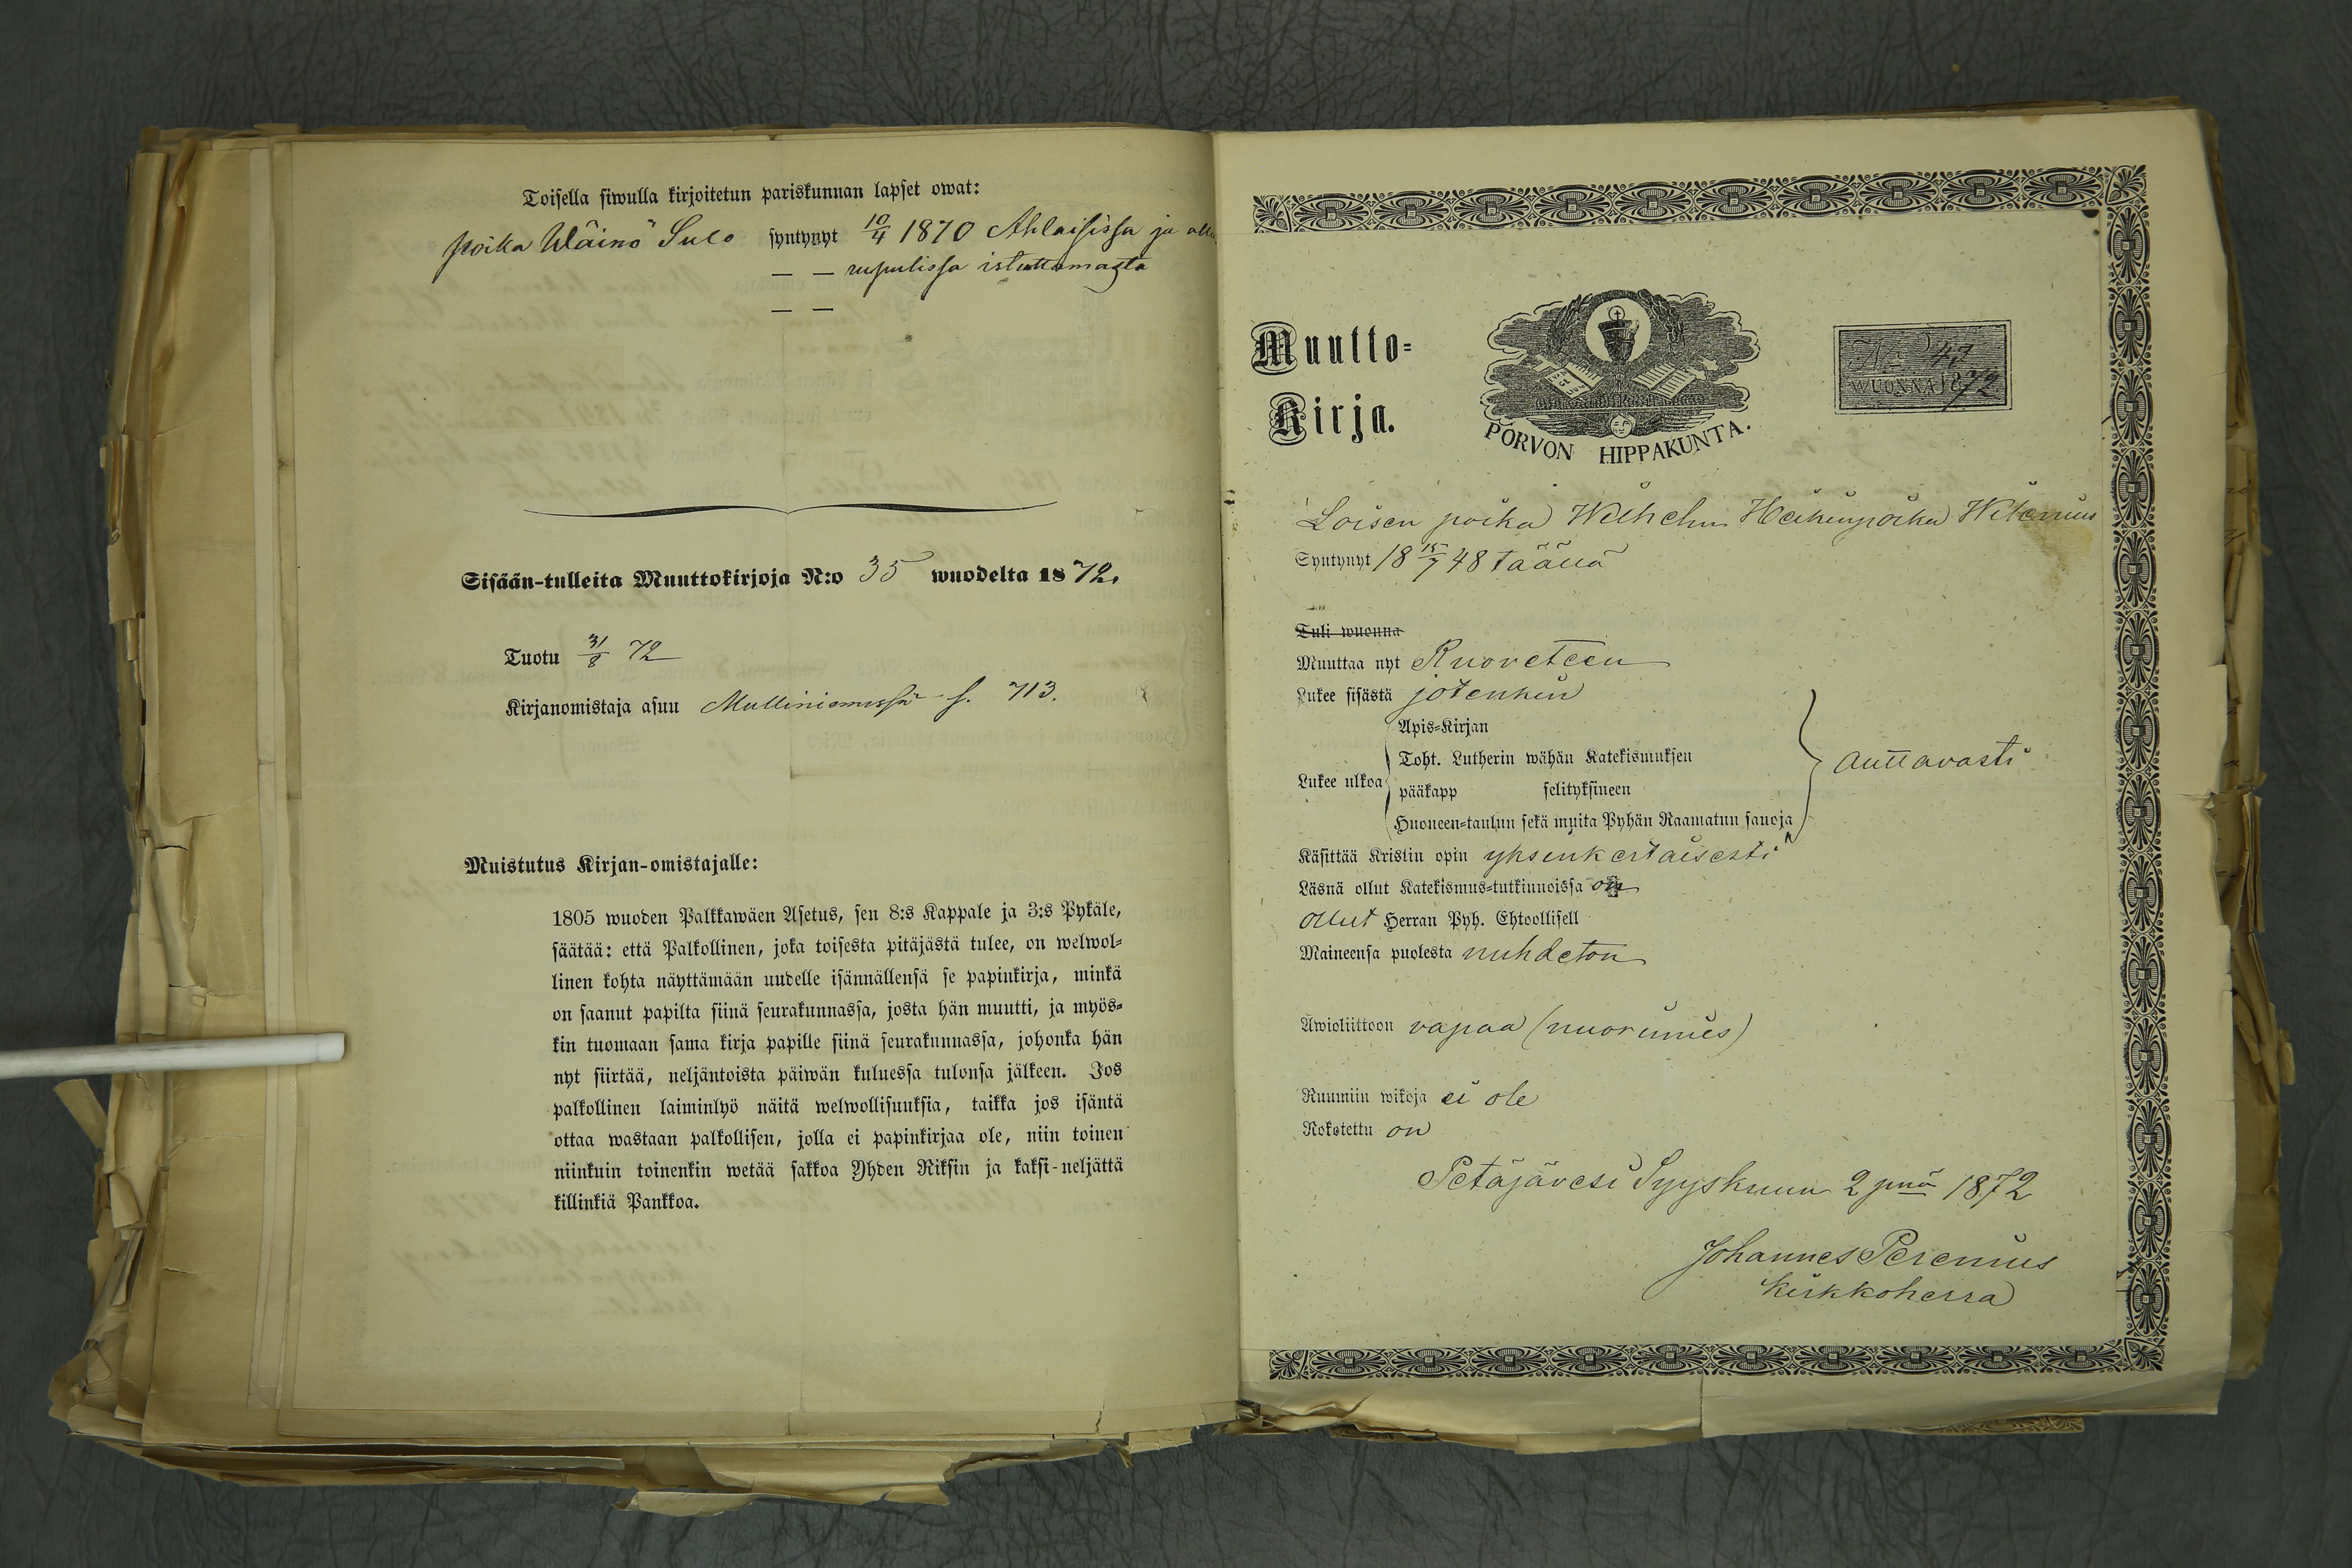 Toisella siwulla kirjoitetun pariskunnan lapset owat:
poika Wäinö Sulo syntynyt 10/4 1870 Ahlaisissa ja
— — rupulissa istuttamasta
— —
Sisään-tulleita Muuttokirjoja N:o 35 wuodelta 1872.
Tuotu 31/8 72
Kirjanomistaja asuu s. 713.
Muistutus Kirjan-omistajalle:
1805 wuoden Palkkawäen Asetus, sen 8:s Kappale ja 3:s Pykäle,
säätää: että Palkollinen, joka toisesta pitäjästä tulee, on welwol-
linen kohta näyttämään uudelle isännällensä se papinkirja, minkä
on saanut papilta siinä seurakunnassa, josta hän muutti, ja myös-
kin tuomaan sama kirja papille siinä seurakunnassa, johonka hän
nyt siirtää, neljäntoista päiwän kuluessa tulonsa jälkeen. Jos
palkollinen laiminlyö näitä welwollisuuksia, taikka jos isäntä
ottaa wastaan palkollisen, jolla ei papinkirjaa ole, niin toinen
niinkuin toinenkin wetää sakkoa Yhden Riksin ja kaksi-neljättä
killinkiä Pankkoa.
Muutto-
Kirja.
PORVON HIPPAKUNTA.
No 47
WUONNA 1872
Loisen poika Wilhelm Heikinpoika Witenius
Syntynyt 18 15/7 48 täällä
Tuli wuonna
Muuttaa nyt Ruoveteen
Lukee sisästä jotenkin
Lukee ulkoa
Apis-Kirjan
Toht. Lutherin wähän Katekismuksen
pääkapp selityksineen
Huoneen-taulun sekä muita Pyhän Raamatun sanoja
auttavasti
Käsittää Kristin opin yksinkertaisesti
Läsnä ollut Katekismus-tutkinnoissa on
ollut Herran Pyh. Ehtoollisell
Maineensa puolesta nuhdeton
Awioliittoon vapaa (nuorimies)
Ruumiin wikoja ei ole
Rokotettu on
Petäjävesi Syyskuun 2 pnä 1872
Johannes Perenius
Kirkkoherra